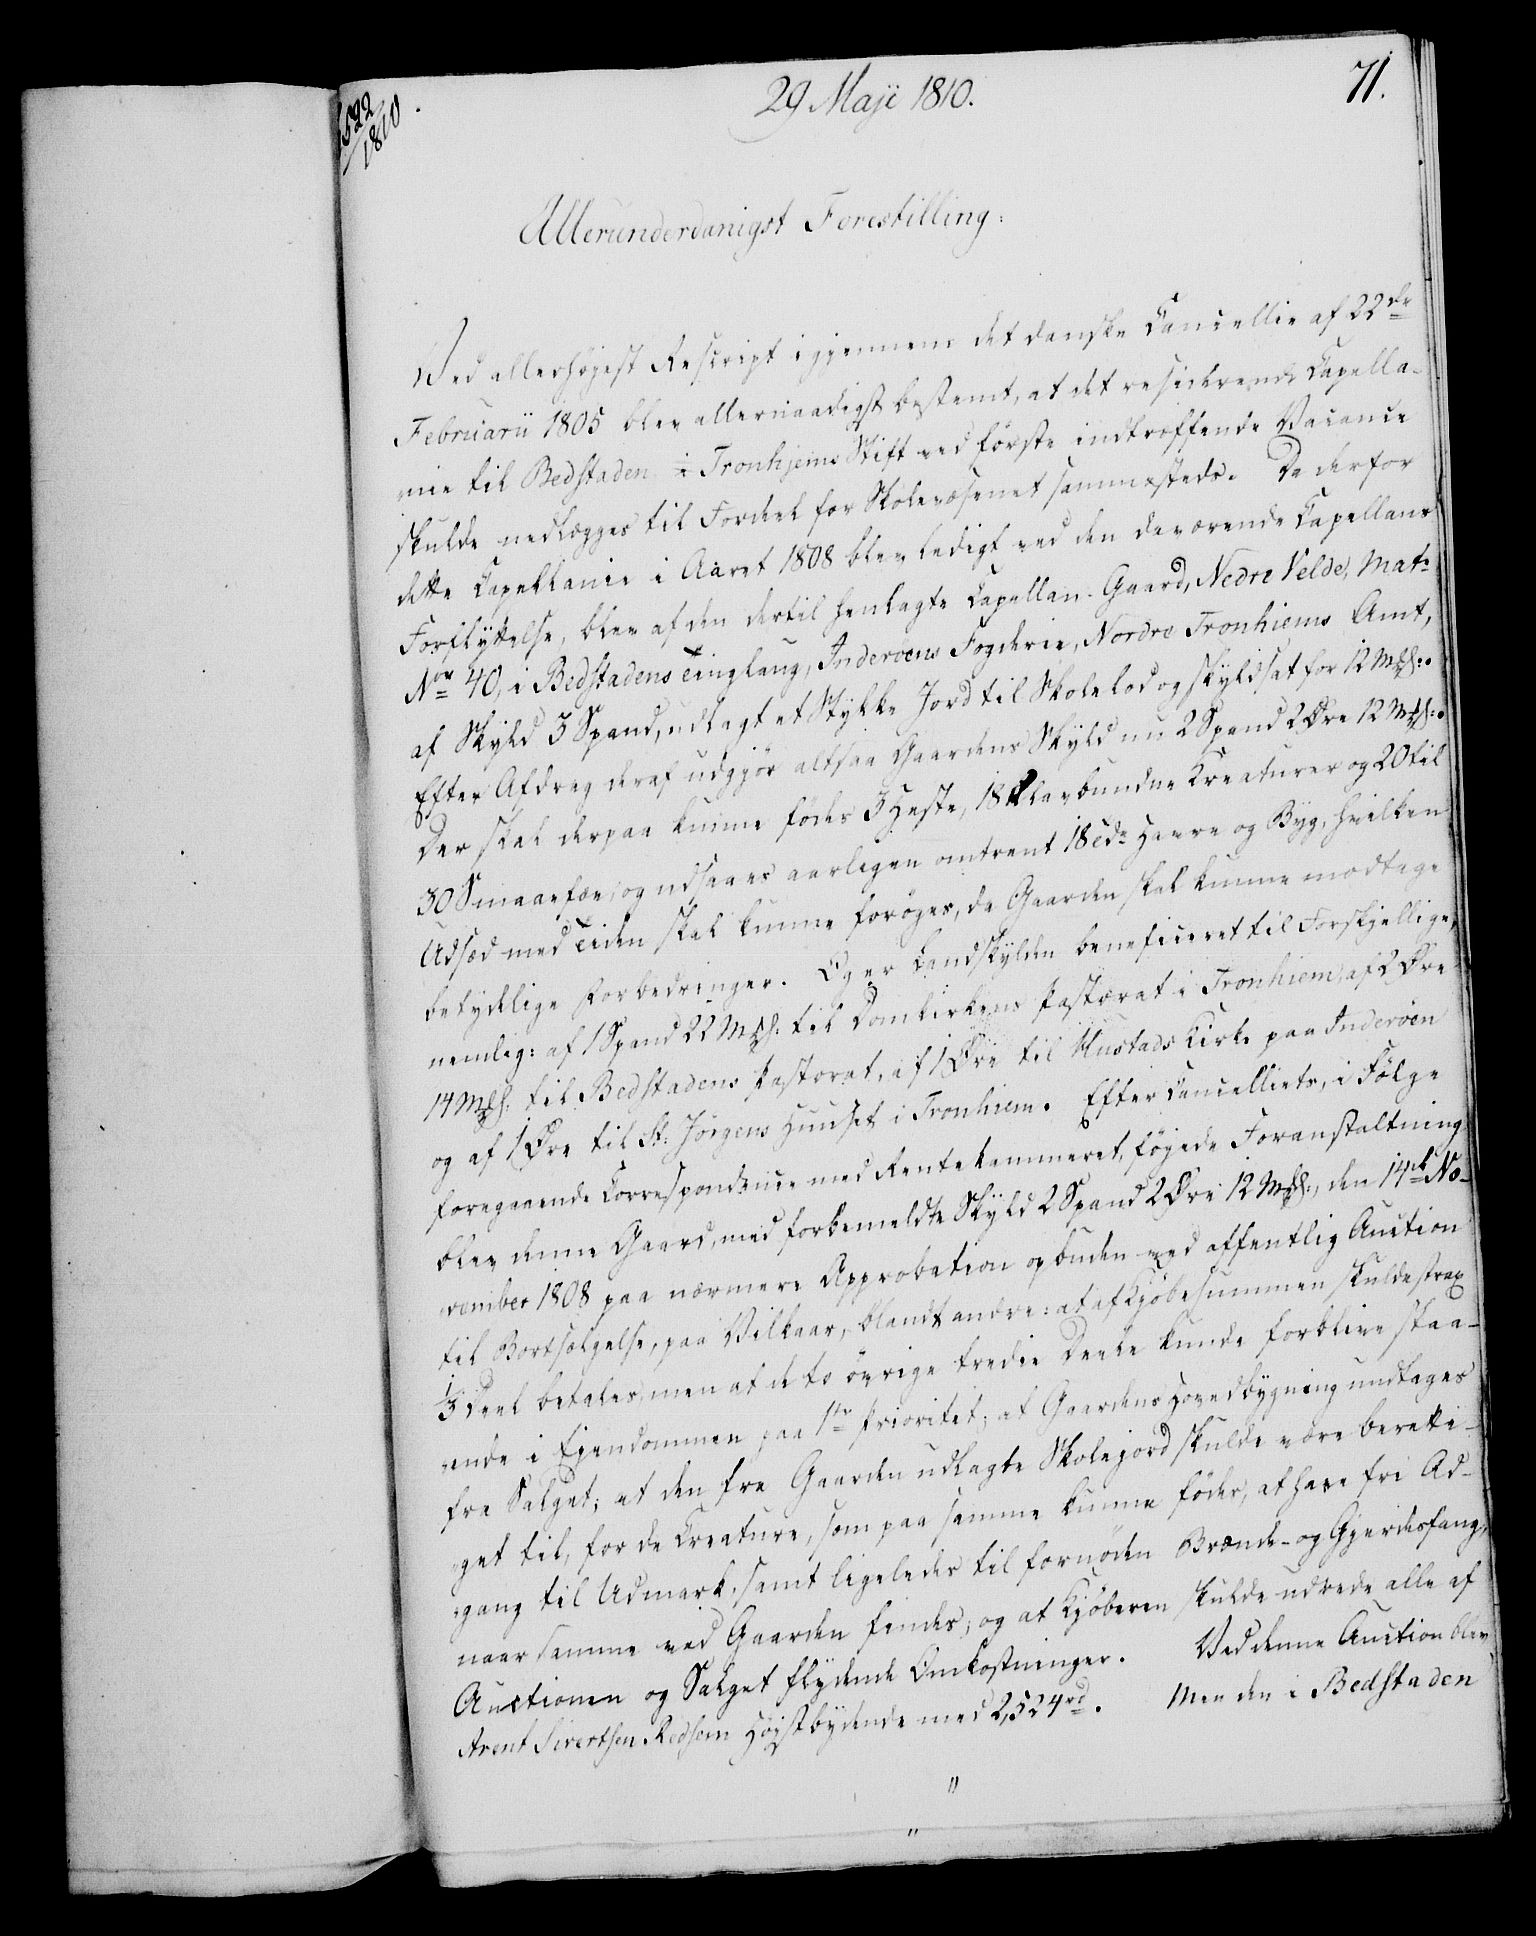 29 Maji 1810.
71.
1522/1810
Allerunderdanigst Forestilling:
Ved allerhøjest Rescript igjennem det danske Cancellie af 22de
Februarii 1805 blev allernaadigst bestemt, at det residerende Capella-
nie til Bedstaden i Tronhjems Stift ved første indtræffende Vacance
skulde nedlægges til Fordeel for Skolevæsenet sammesteds. Da derfor
dette Capellanie i Aaret 1808 blev ledigt ved den daværende Capellans
Forflyttelse, blev af den dertil henlagte Capellan-Gaard, Nedre Velde, Mat:
Nor 40, i Bedstadens Tinglaug, Inderøens Fogderie, Nordre Tronhiems Amt,
af Skyld 3 Spand, udlagt et Stykke Jord til Skolelod og skyldsat for 12 Mkl:.
Efter Afdrag deraf udgjør altsaa Gaardens Skyld nu 2 Spand 2 Øre 12 Mkl:.
Der skal derpaa kunne fødes 3 Heste, 18 klavbundne Kreaturer og 20 til
30 Smaafæe, og udsaaes aarligen omtrent 18 Tdr Havre og Byg, hvilken
Udsæd med Tiden skal kunne forøges, da Gaarden skal kunne modtage
betydelige Forbedringer. Og er Landskylden beneficeret til Forskjellige,
nemlig: af 1 Spand 22 Mkl. til Domkirkens Pastorat i Tronhiem, af 2 Øre
14 Mkl. til Bedstadens Pastorat, af 1 Øre til Hustads Kirke paa Inderøen
og af 1 Øre til St: Jørgens Huuset i Tronhiem. Efter Cancelliets, i Følge
foregaaende Correspondence med Rentekammeret, føjede Foranstaltning
blev denne Gaard, med forbemeldte Skyld 2 Spand 2 Øre 12 Mkl., den 14de No-
vember 1808 paa nærmere Approbation opbuden ved offentlig Auction
til Bortsælgelse, paa Vilkaar, blandt andre: at af Kjøbesummen skulde strax
1/3 Deel betales, men at de to øvrige tredie Deele kunde forblive staa-
ende i Ejendommen paa 1te Prioritet; at Gaardens Hovedbygning undtages
fra Salget; at den fra Gaarden udlagte Skolejord skulde være beretti-
get til, for de Creature, som paa samme kunne fødes, at have fri Ad-
gang til Udmark, samt ligeledes til fornøden Brænde- og Gjerdesfang,
naar samme ved Gaarden findes; og at Kjøberen skulde udrede alle af
Auctionen og Salget flydende Omkostninger. Ved denne Auction blev
Arent Sivertsen Redsem Højstbydende med 2,524 rd. Men den i Bedstaden